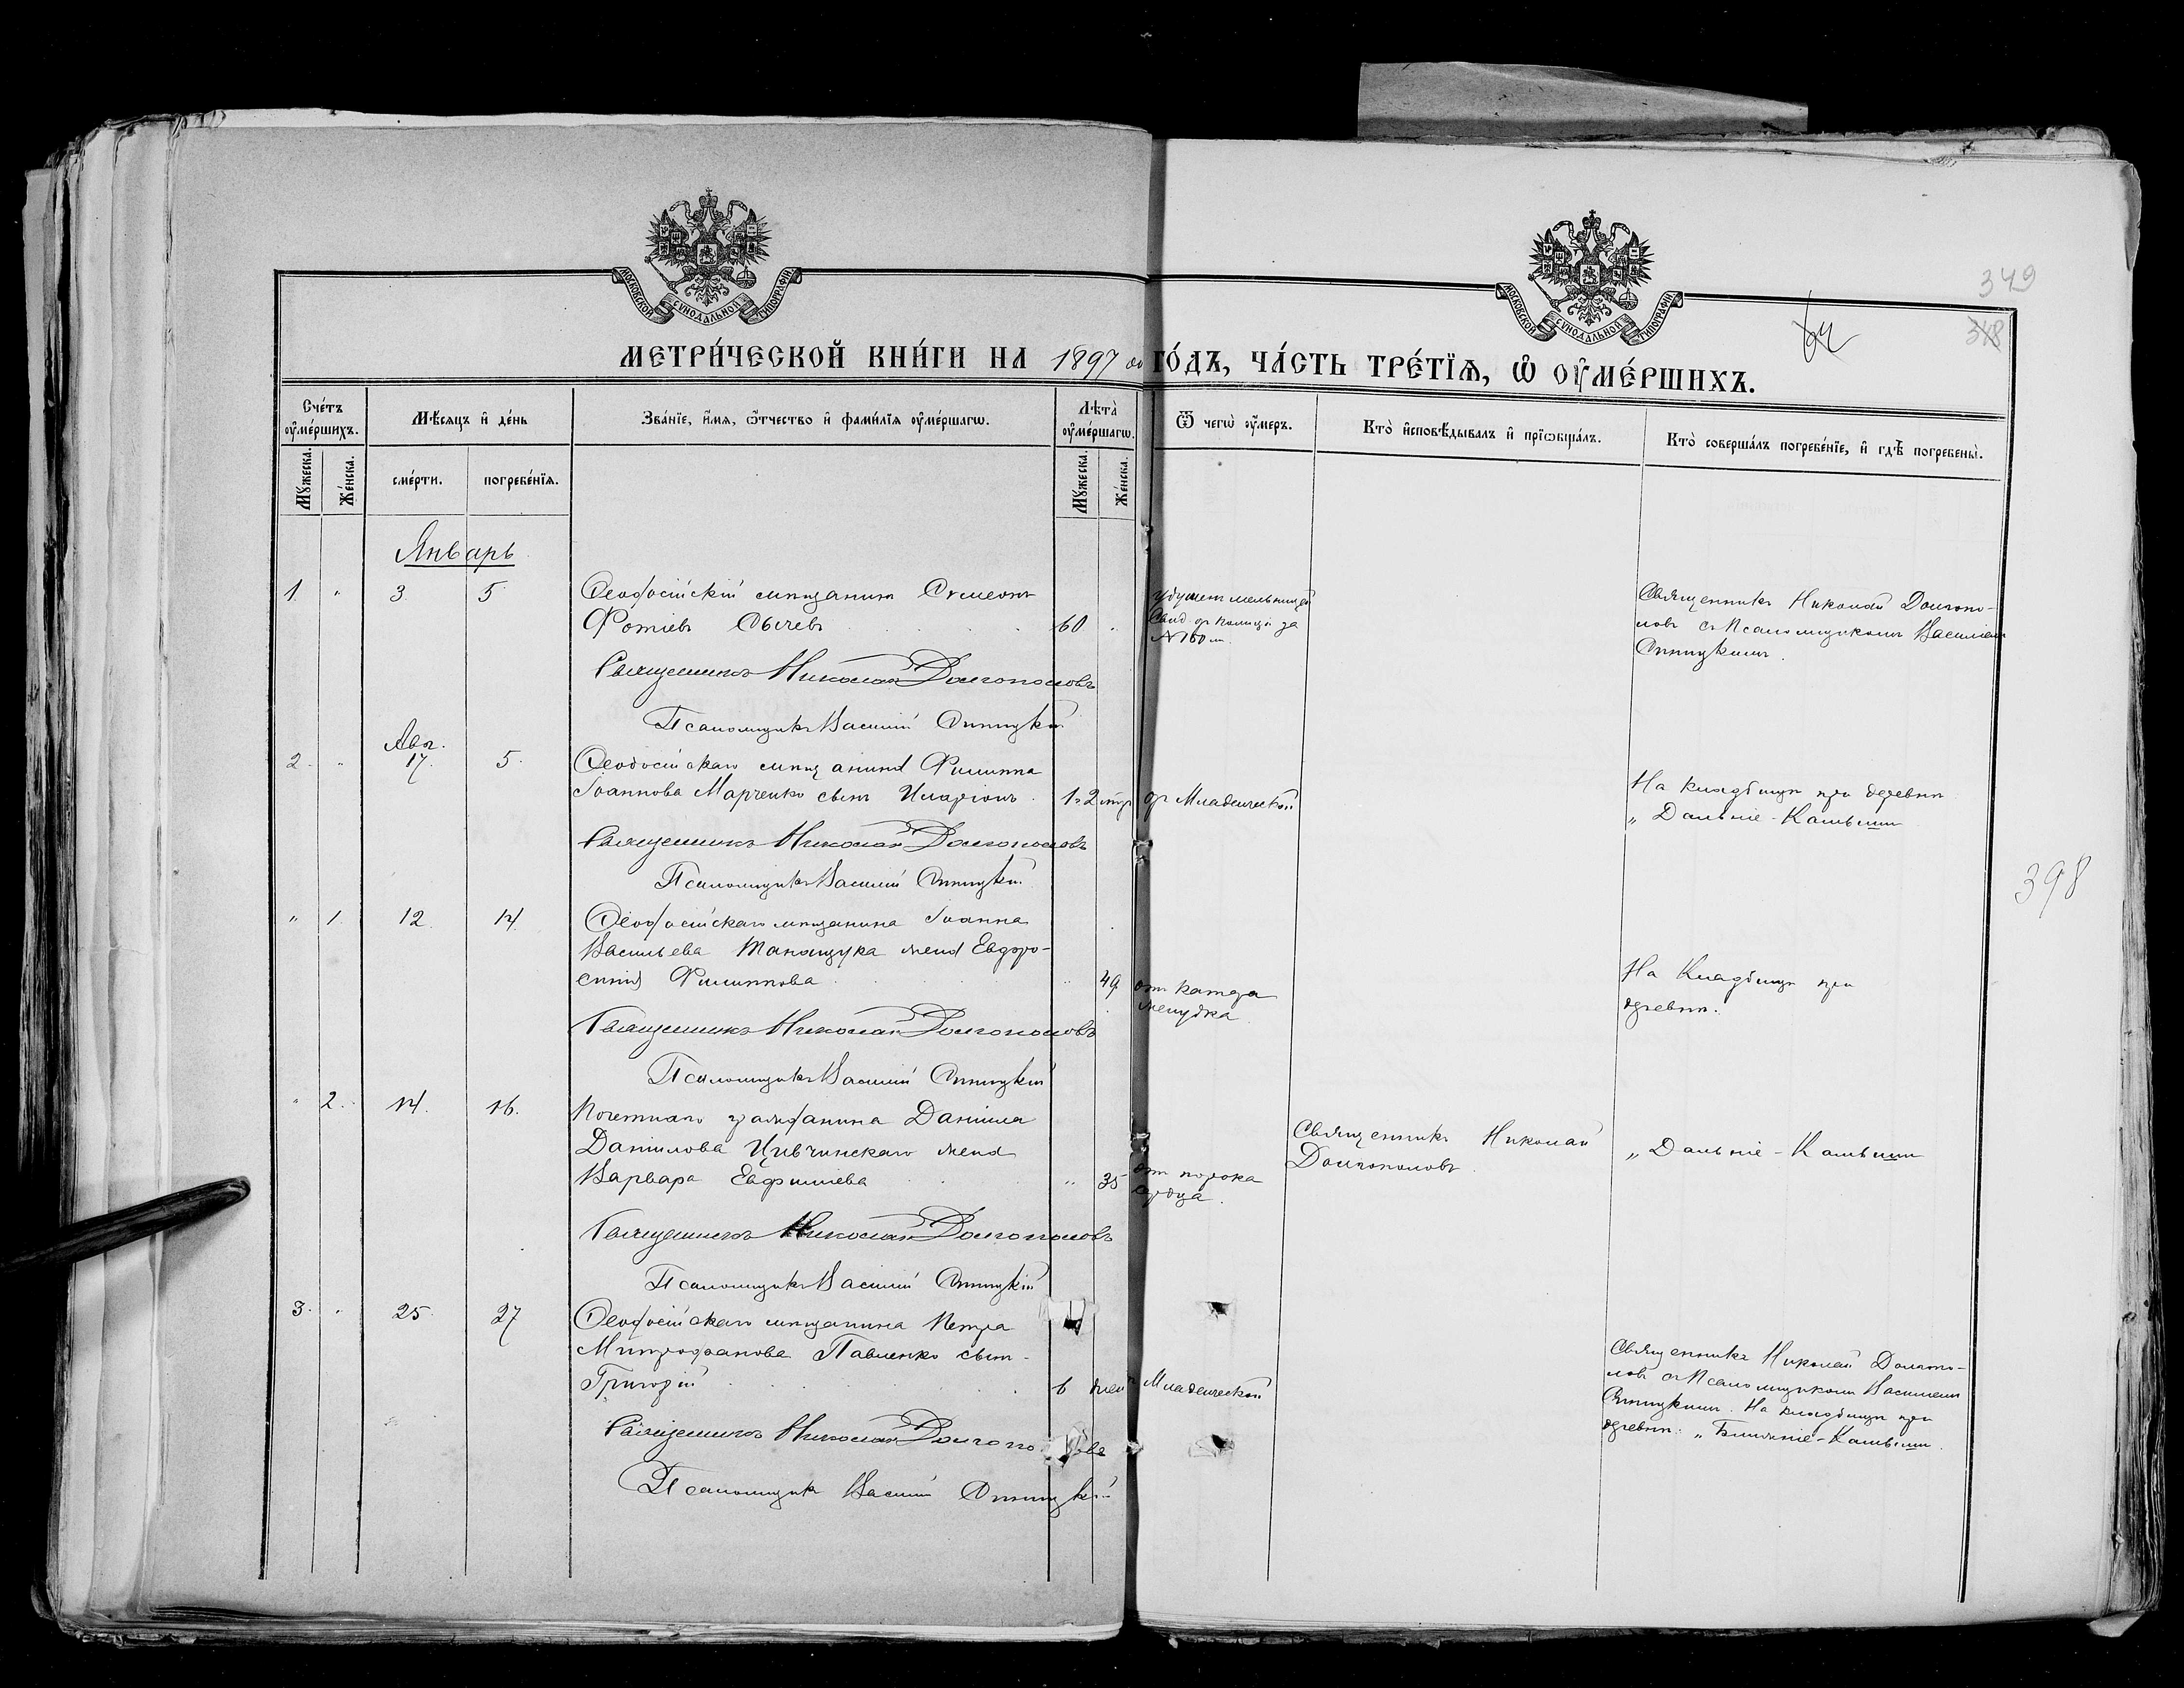 МОСКОВСКОЙ СУНОДАЛЬНОЙ ТИПОГРАФІИ
МОСКОВСКОЙ СУНОДАЛЬНОЙ ТИПОГРАФІИ
349
348
МЕТРИ́ЧЕСКОЙ КНИ́ГИ НА 1897 ой ГО́ДЪ, ЧА́СТЬ ТРЕ́ТЇѦ, Ѡ҆ ОУ҆МЕ́РШИХЪ.
Сче́тъ оу҆ме́ршихъ.
Мѣ́сяцъ и҆ де́нь
Зва́нїе, и҆́мя, ѻ҆́тчество и҆ фами́лїя оу҆ме́ршагѡ.
Лѣта̀ оу҆ме́ршагѡ.
Ѿ чегѡ̀ оу҆́меръ.
Кто̀ и҆сповѣ́дывалъ и҆ прїѡбща́лъ.
Кто̀ соверша́лъ погребе́нїе, и҆ гдѣ̀ погребены̀.
Мꙋ́жеска.
Же́нска.
сме́рти.
погребе́нїя.
Мꙋ́жеска.
Же́нска.
Январь
1 " 3 5 Ѳеодосійскій мѣщанинъ Сѵмеонъ
Фотіевъ Сычевъ 60
Священникъ Николай Долгопо-
ловъ съ Псаломщикомъ Василіемъ
Священникъ Николай Долгополовъ
Псаломщикъ Василій
2 " 17 5 Ѳеодосійскаго мѣщанина Филиппа
Іоаннова Марченко сынъ Иларіонъ 1
Младенческой
На кладбищѣ при деревнѣ
„ Дальніе-Камыши
Священникъ Николай Долгополовъ
Псаломщикъ Василій
" 1 12 14 Ѳеодосійскаго мѣщанина Іоанна
Васильева жена Евфро-
синія Филиппова 49 отъ катара
желудка
На Кладбищѣ при
деревнѣ.
Священникъ Николай Долгополовъ
Псаломщикъ Василій
" 2 14 16 Почетнаго гражданина Даніила
Данилова Цивчинскаго жена
Варвара Евфиміева " 35 отъ порока
сердца.
Священникъ Николай
Долгополовъ
„ Дальніе-Камыши
Священникъ Николай Долгополовъ
Псаломщикъ Василій
3 " 25 27 Ѳеодосійскаго мѣщанина Петра
Митрофанова Павленко сынъ
Григорій 6 дней Младенческой
Священникъ Николай Долгопо-
ловъ съ Псаломщикомъ Василіемъ
На кладбищѣ при
деревнѣ „ Ближніе-Камыши
Священникъ Николай Долгополовъ
Псаломщикъ Василій
398